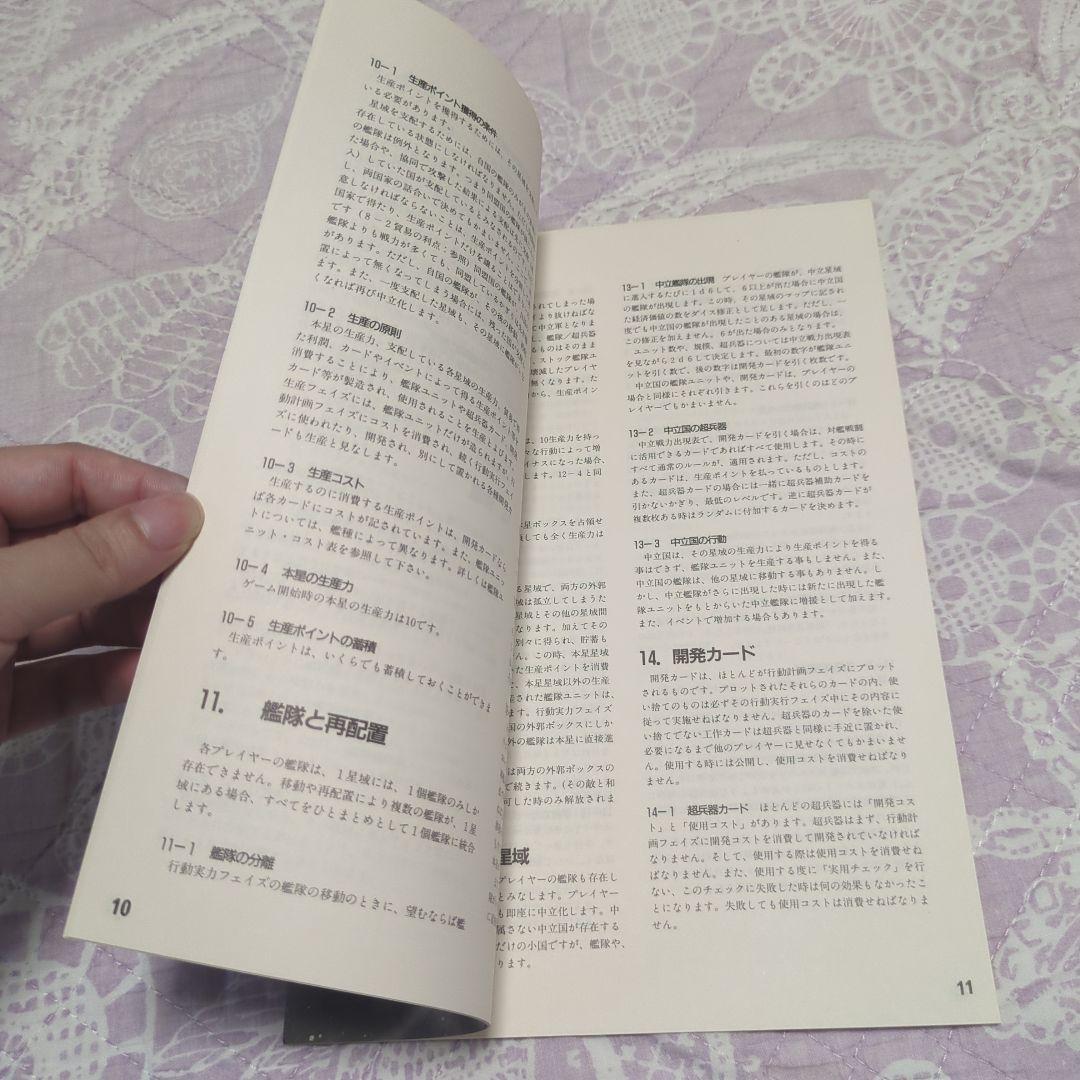 10－1　生産ポイント獲得の条件
生産ポイントを獲得するためには、その星域を
いる必要があります。
星域を支配するためには、自国の艦隊のみが
存在している状態にしなければなりません
の艦隊は例外となります。つまり同盟国の艦隊
た場合や、協同で攻撃した結果による支配
入）していた国が支配しているとみなされ
し、両国家の話合いで決めてもかまいません
意しなければならないことは、生産ポイントを
国家で得たり、生産ポイントだけを譲る
です（8－2貿易の利点：参照）同盟国の艦隊
艦隊よりも戦力が多くても、同盟している
があります。ただし、自国の艦隊が、その後の
置によって無くなってしまう場合には、残った国が
ます。また、一度支配した星域も、その星域に艦隊が
くなれば再び中立化します。
10－2　生産の原則
本星の生産力、支配している各星域の生産力、貿易で得
た利潤、カードやイベントによって得る生産ポイントを
消費することにより、艦隊ユニットや超兵器カード、開発
カード等が製造され、使用されることを生産とよびます。
生産フェイズには、艦隊ユニットだけが造られますが、行
動計画フェイズにコストを消費され、続く行動実行フェイ
ズに使われたり、開発され、別にして置かれる各種開発カ
ードも生産と見なします。
10－3　生産コスト
生産するのに消費する生産ポイントは、開発カードなら
ば各カードにコストが記されています。また、艦隊ユニッ
トについては、艦種によって異なります。詳しくは艦隊ユ
ニット・コスト表を参照して下さい。
10－4　本星の生産力
ゲーム開始時の本星の生産力は10です。
10－5　生産ポイントの蓄積
生産ポイントは、いくらでも蓄積しておくことができま
す。
11.　艦隊と再配置
各プレイヤーの艦隊は、1星域には、1個艦隊のみしか
存在できません。移動や再配置により複数の艦隊が、1星
域にある場合、すべてをひとまとめとして1個艦隊に統合
します。
11－1　艦隊の分離
行動実力フェイズの艦隊の移動のときに、望むならば艦
10
されてしまった場
より抜けねばな
て中立軍となりま
し、艦隊／超兵器
るものはそのまま
、ストック艦隊ユ
壊滅したプレイヤ
無くなります。た
から、生産ポイン
は、10生産力を持っ
々な行動によって増
イナスになった場合、
ます。12－4と同
本星ボックスを占領せ
しても全く生産力は
る星域で、両方の外郭
域は孤立してしまうた
星域とその他の星域間
なります。加えてその
別々に得られ、貯蓄も
ん。この時、本星星域
いた生産ポイントを消費
た、本星星域以外の生産
産された艦隊ユニットは、
ます。行動実力フェイズ
国の外郭ボックスにしか
外の艦隊は本星に直接進
は両方の外郭ボックスの
で続きます。(その敵と和
可した時のみ解放されま
星域
プレイヤーの艦隊も存在し
とみなします。プレイヤー
も即座に中立化します。中
属さない中立国が存在する
だけの小国ですが、艦隊や、
ります。
13－1　中立艦隊の出現　プレイヤーの艦隊が、中立星域
に進入するたびに1d6して、6以上が出た場合に中立国
の艦隊が出現します。この時、その星域のマップに記され
た経済価値の数をダイス修正として足します。ただし、一
度でも中立国の艦隊が出現したことのある星域の場合は、
この修正を加えません。6が出た場合のみとなります。
ユニット数や、規模、超兵器については中立戦力出現表
を見ながら2d6して決定します。最初の数字が艦隊ユニ
ットを引く数で、後の数字は開発カードを引く枚数です。
中立国の艦隊ユニットや、開発カードは、プレイヤーの
場合と同様にそれぞれ引きます。これらを引くのはどのプ
レイヤーでもかまいません。
13－2　中立国の超兵器
中立戦力出現表で、開発カードを引く場合は、対艦戦闘
に活用できるカードであればすべて使用します。その時に
すべて通常のルールが、適用されます。ただし、コストの
あるカードは、生産ポイントを払っているものとします。
また、超兵器カードの場合には一緒に超兵器補助カードも
引かないかぎり、最低のレベルです。逆に超兵器カードが
複数枚ある時はランダムに付加するカードを決めます。
13－3　中立国の行動
中立国は、その星域の生産力により生産ポイントを得る
事はできず、艦隊ユニットを生産する事もしません。また、
中立国の艦隊は、他の星域に移動する事もありません。し
かし、中立艦隊がさらに出現した時には新たに出現した艦
隊ユニットをもとからいた中立艦隊に増援として加えます。
また、イベントで増加する場合もあります。
14.　開発カード
開発カードは、ほとんどが行動計画フェイズにプロット
されるものです。プロットされたそれらのカードの内、使
い捨てのものは必ずその行動実行フェイズ中にその内容に
従って実施せねばなりません。超兵器のカードを除いた使
い捨てでない工作カードは超兵器と同様に手近に置かれ、
必要になるまで他のプレイヤーに見せなくてもかまいませ
ん。使用する時には公開し、使用コストを消費せねばなり
ません。
14－1　超兵器カード　ほとんどの超兵器には「開発コス
ト」と「使用コスト」があります。超兵器はまず、行動計
画フェイズに開発コストを消費して開発されていなければ
なりません。そして、使用する際は使用コストを消費せね
ばなりません。また、使用する度に「実用チェック」を行
ない、このチェックに失敗した時は何の効果もなかったこ
とになります。失敗しても使用コストは消費せねばなりま
せん。
11